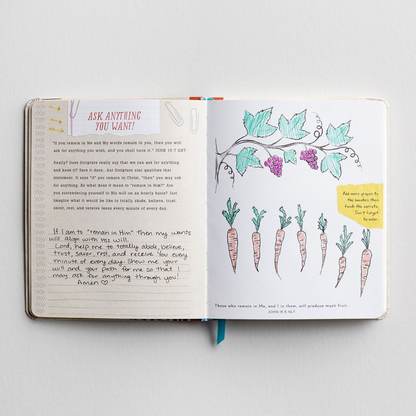 ASK ANYTHING
YOU WANT!
"If you remain in Me and My words remain in you, then you will
ask for anything you wish, and you shall have it." JOHN 15:7 GNT
Really? Does Scripture really say that we can ask for anything
and have it? Sure it does... but Scripture also qualifies that
statement. It says "if" you remain in Christ, "then" you may ask
for anything. So what does it mean to "remain in Him?" Are
you surrendering yourself to His will on an hourly basis? Just
imagine what it would be like to totally abide, believe, trust,
savor, rest, and receive Jesus every minute of every day.
If I am to "remain in Him" then my wants
will align with His will.
Lord, help me to totally abide, believe,
trust, savor, rest, and receive You every
minute of every day. Show me your
will and your path for me so that I
may ask for anything through you!
Amen ♡
Add more grapes to
the bunches then
finish the carrots.
Don't forget
to color.
Those who remain in Me, and I in them, will produce much fruit.
JOHN 15:5 NLT